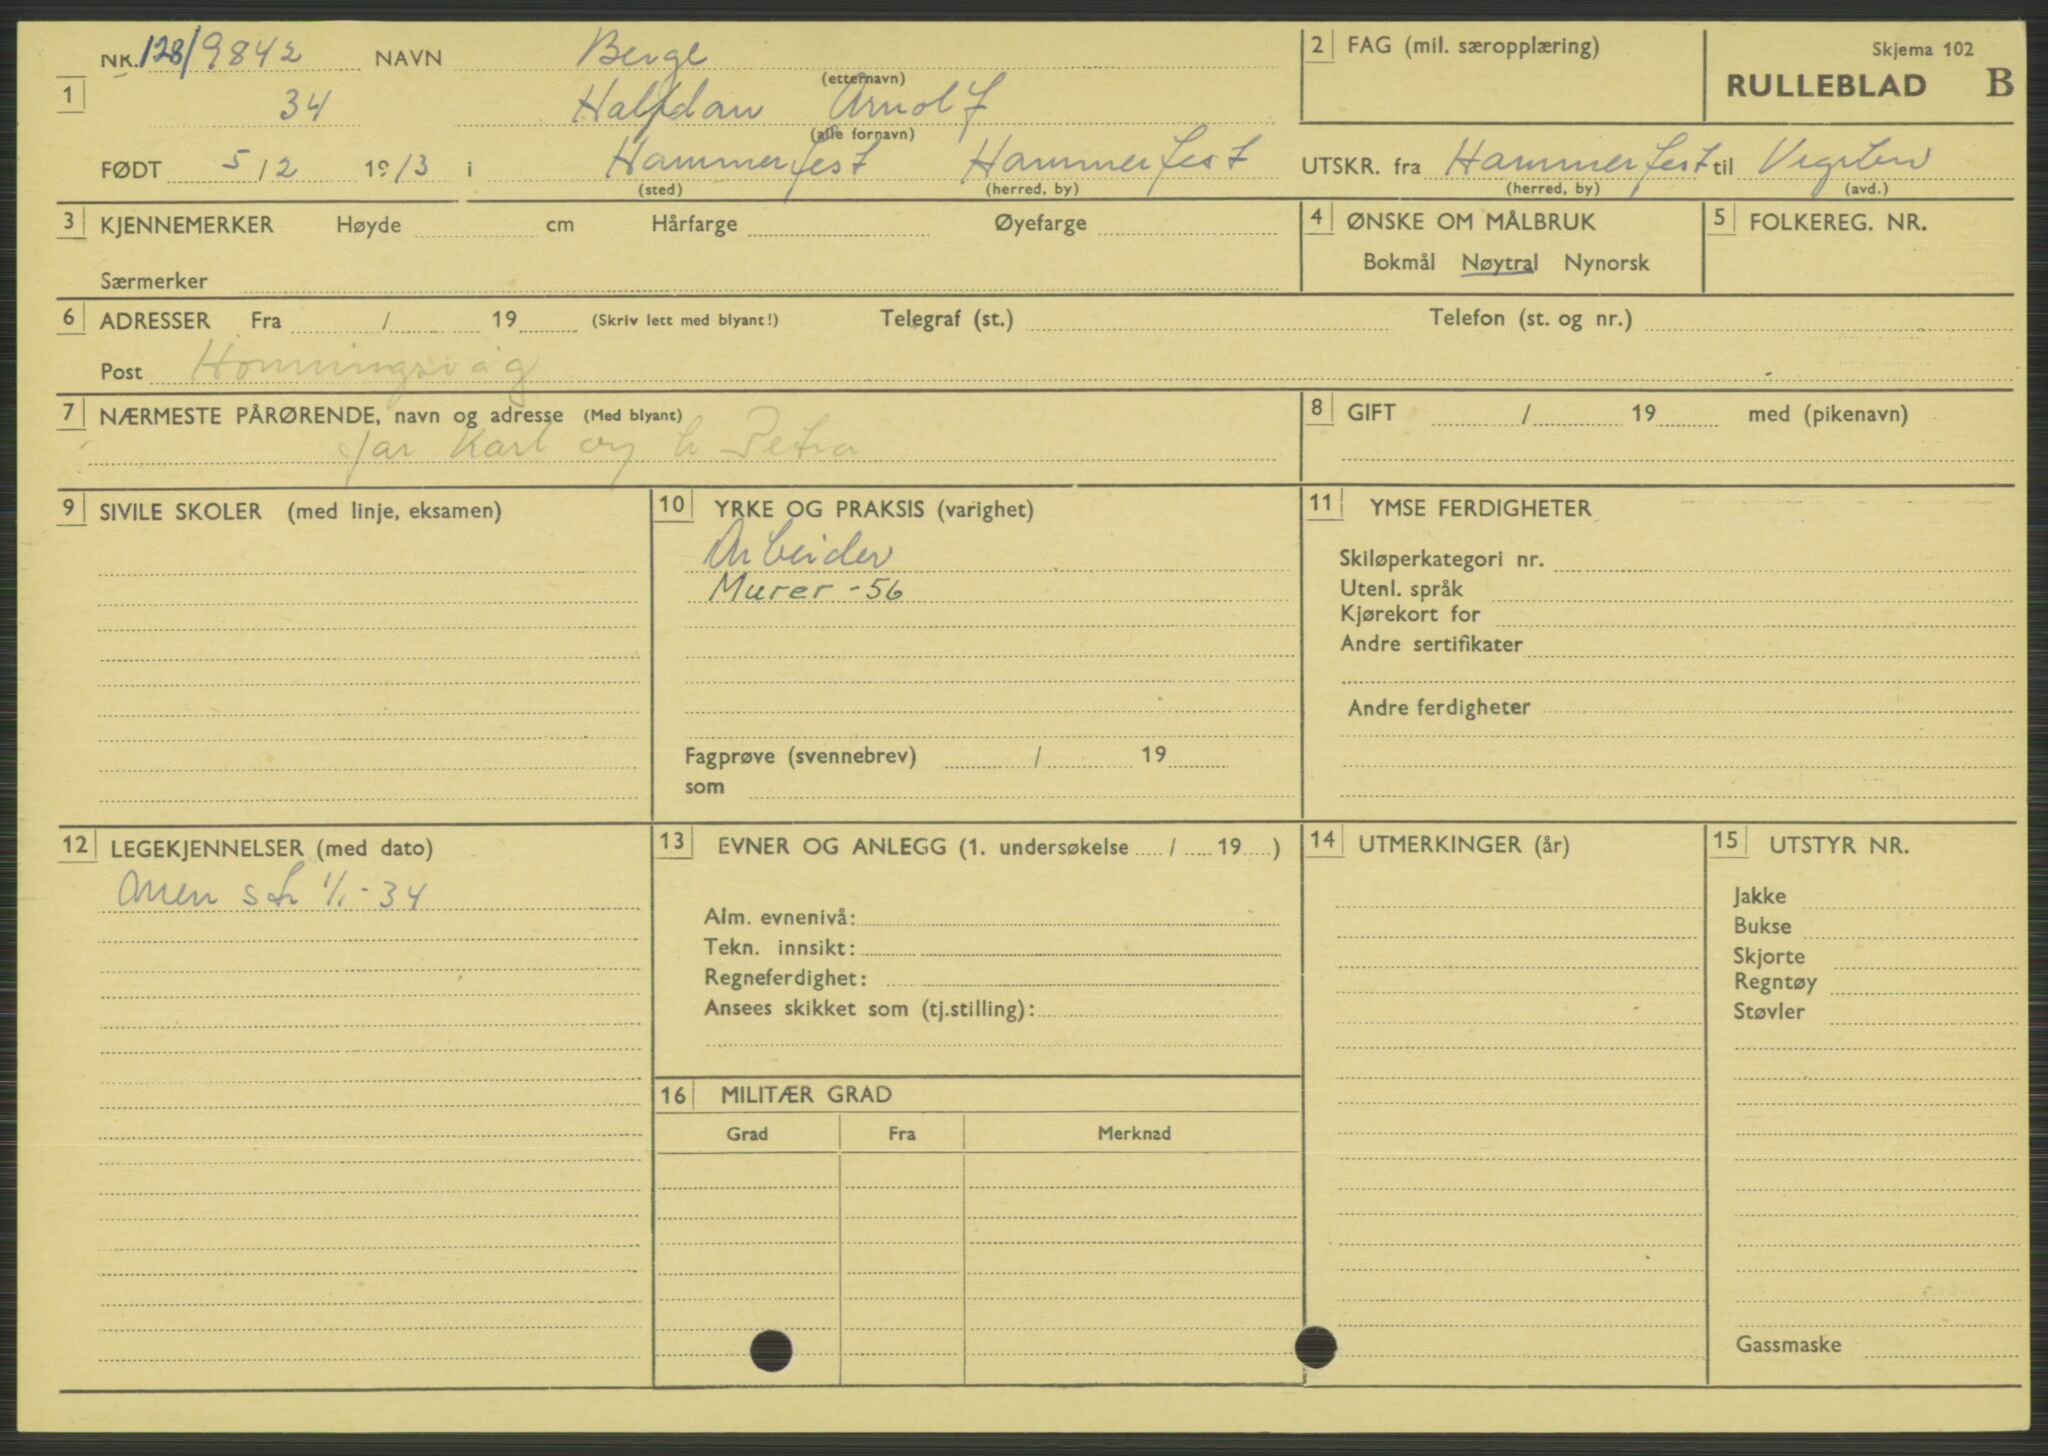 NK. 128/9842 NAVN Berge
(etternavn)
1
34 Halfdan Arnolf
(alle fornavn)
FØDT 5/2 1913 i Hammerfest Hammerfest
(sted) (herred, by)
2 FAG (mil. særopplæring)
Skjema 102
RULLEBLAD B
UTSKR. fra Hammerfest til
(herred, by) (avd.)
3 KJENNEMERKER Høyde cm Hårfarge Øyefarge
Særmerker
4 ØNSKE OM MÅLBRUK
Bokmål Nøytral Nynorsk
5 FOLKEREG. NR.
6 ADRESSER Fra / 19 (Skriv lett med blyant!) Telegraf (st.) Telefon (st. og nr.)
Post Honningsvåg
7 NÆRMESTE PÅRØRENDE, navn og adresse (Med blyant)
far Karl og h Petra
8 GIFT / 19 med (pikenavn)
9 SIVILE SKOLER (med linje, eksamen)
10 YRKE OG PRAKSIS (varighet)
Arbeider
Murer -56
Fagprøve (svennebrev) / 19
som
11 YMSE FERDIGHETER
Skiløperkategori nr.
Utenl. språk
Kjørekort for
Andre sertifikater
Andre ferdigheter
12 LEGEKJENNELSER (med dato)
1/1-34
13 EVNER OG ANLEGG (1. undersøkelse / 19 )
Alm. evnenivå:
Tekn. innsikt:
Regneferdighet:
Ansees skikket som (tj.stilling):
14 UTMERKINGER (år)
15 UTSTYR NR.
Jakke
Bukse
Skjorte
Regntøy
Støvler
Gassmaske
16 MILITÆR GRAD
Grad Fra Merknad